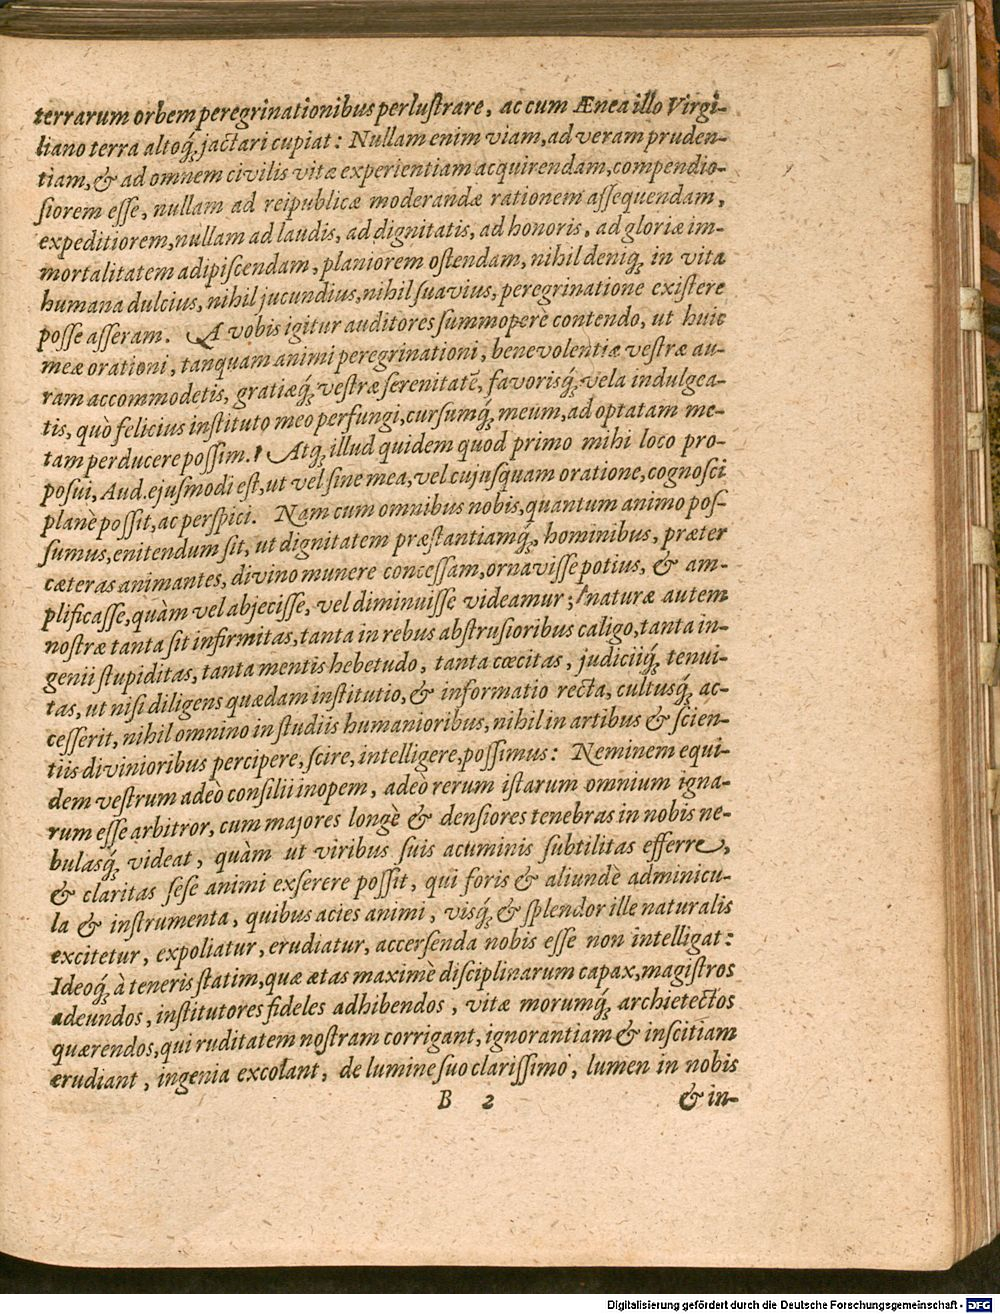 terrarum orbem peregrinationibus perluſtrare, ac cum Ænea illo Virgi-
liano terra altoq́; jactari cupiat: Nullam enim viam, ad veram pruden-
tiam, & ad omnem civilis vitæ experientiam acquirendam, compendio-
ſiorem eſſe, nullam ad reipublicæ moderandæ rationem aſſequendam,
expeditiorem, nullam ad laudis, ad dignitatis, ad honoris, ad gloriæ im-
mortalitatem adipiſcendam, planiorem oſtendam, nihil deniq; in vita
humana dulcius, nihil jucundius, nihil ſuavius, peregrinatione exiſtere
poſſe aſſeram. A vobis igitur auditores ſummoperè contendo, ut huic
meæ orationi, tanquam animi peregrinationi, benevolentiæ veſtræ au-
ram accommodetis, gratiæq́; veſtræ ſerenitatē, favorisq́; vela indulgea-
tis, quò felicius inſtituto meo perfungi, curſumq́; meum, ad optatam me-
tam perducere poſſim. Atq; illud quidem quod primo mihi loco pro-
poſui, Aud. ejuſmodi eſt, ut vel ſine mea, vel cujuſquam oratione, cognoſci
planè poſſit, ac perſpici. Nam cum omnibus nobis, quantum animo poſ-
ſumus, enitendum ſit, ut dignitatem præſtantiamq́;, hominibus, præter
cæteras animantes, divino munere conceſſam, ornaviſſe potius, & am-
plificaſſe, quàm vel abjeciſſe, vel diminuiſſe videamur; naturæ autem
noſtræ tanta ſit infirmitas, tanta in rebus abſtruſioribus caligo, tanta in-
genii ſtupiditas, tanta mentis hebetudo, tanta cœcitas, judiciiq́; tenui-
tas, ut niſi diligens quædam inſtitutio, & informatio recta, cultusq́; ac-
ceſſerit, nihil omnino in ſtudiis humanioribus, nihil in artibus & ſcien-
tiis divinioribus percipere, ſcire, intelligere, poſſimus: Neminem equi-
dem veſtrum adeò conſilii inopem, adeò rerum iſtarum omnium igna-
rum eſſe arbitror, cum majores longè & denſiores tenebras in nobis ne-
bulasq́; videat, quàm ut viribus ſuis acuminis ſubtilitas efferre,
& claritas ſeſe animi exſerere poſſit, qui foris & aliundè adminicu-
la & inſtrumenta, quibus acies animi, visq́; & ſplendor ille naturalis
excitetur, expoliatur, erudiatur, accerſenda nobis eſſe non intelligat:
Ideoq́; à teneris ſtatim, quæ ætas maximè diſciplinarum capax, magiſtros
adeundos, inſtitutores fideles adhibendos, vitæ morumq́; archietectos
quærendos, qui ruditatem noſtram corrigant, ignorantiam & inſcitiam
erudiant, ingenia excolant, de lumine ſuo clariſſimo, lumen in nobis
B 2 & in-
Digitalisierung gefördert durch die Deutsche Forschungsgemeinschaft - DFG